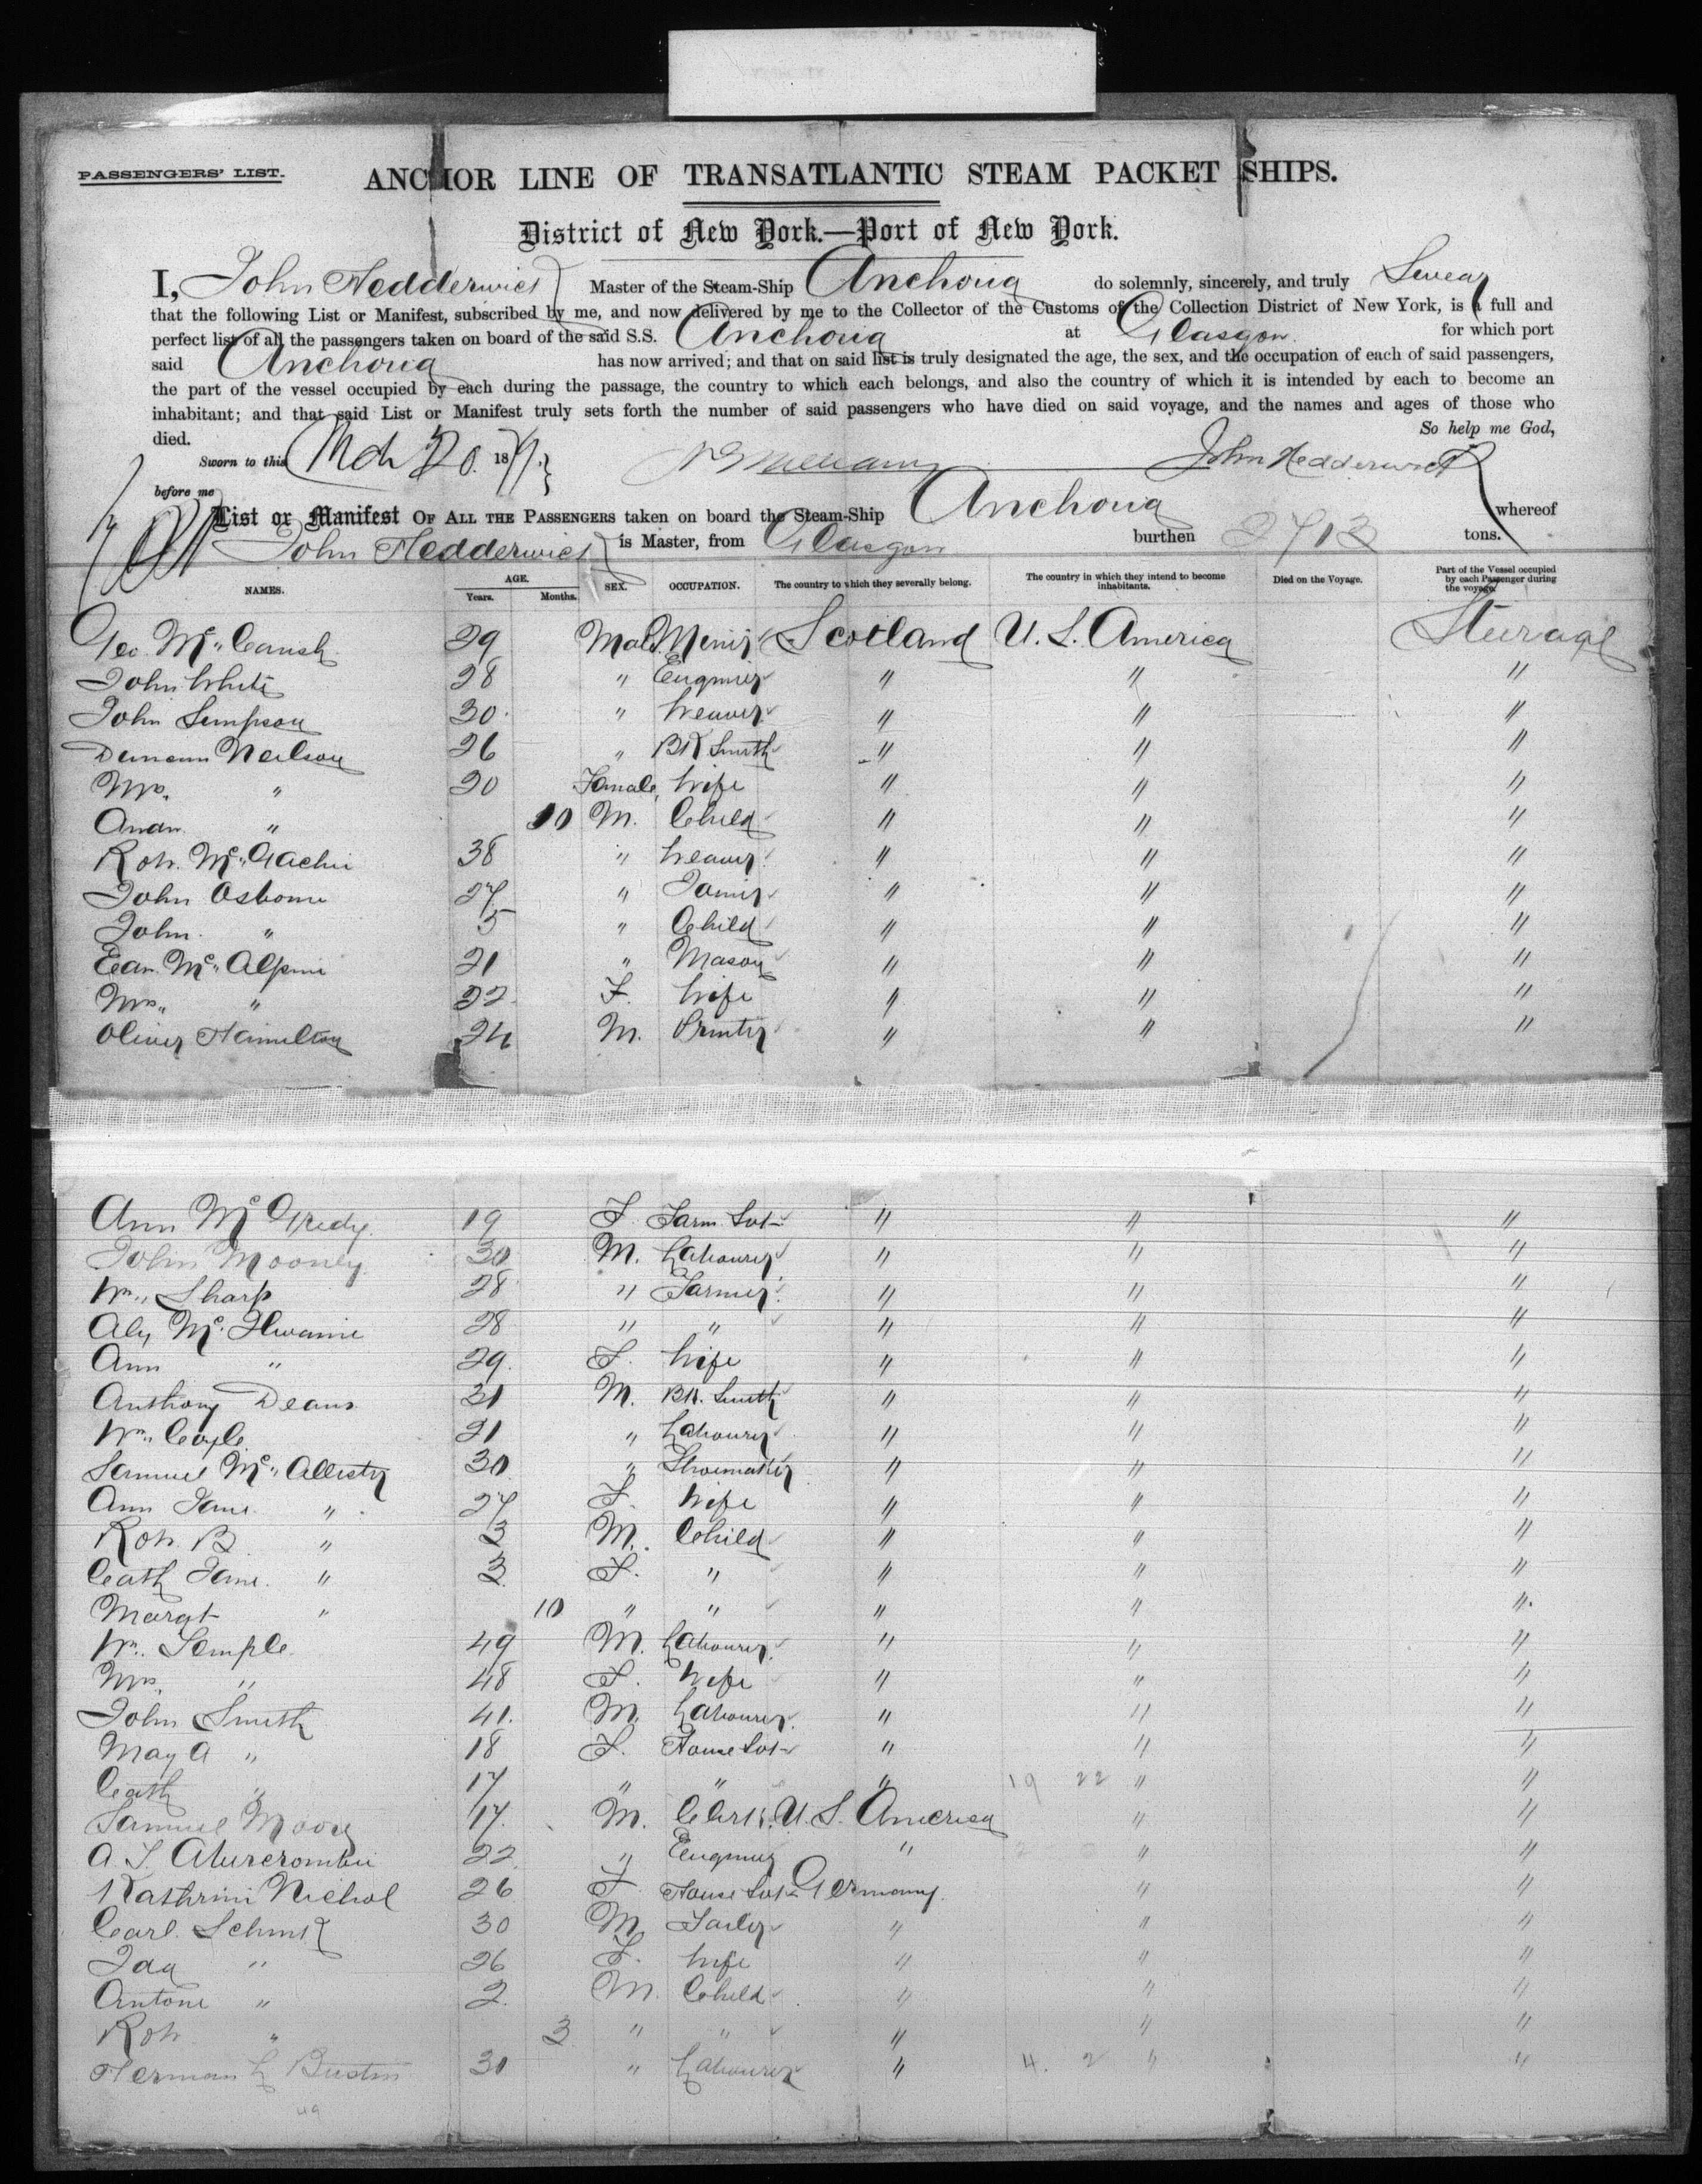 PASSENGERS' LIST.
ANCHOR LINE OF TRANSATLANTIC STEAM PACKET SHIPS.
District of New York.—Port of New York.
I, John Hedderwick Master of the Steam-Ship Anchoria do solemnly, sincerely, and truly Swear
that the following List or Manifest, subscribed by me, and now delivered by me to the Collector of the Customs of the Collection District of New York, is a full and
perfect list of all the passengers taken on board of the said S.S. Anchoria at Glasgow. for which port
said Anchoria has now arrived; and that on said list is truly designated the age, the sex, and the occupation of each of said passengers,
the part of the vessel occupied by each during the passage, the country to which each belongs, and also the country of which it is intended by each to become an
inhabitant; and that said List or Manifest truly sets forth the number of said passengers who have died on said voyage, and the names and ages of those who
died. So help me God,
Sworn to this Mch 20. 187 John Hedderwick
before me
List or Manifest OF ALL THE PASSENGERS taken on board the Steam-Ship Anchoria whereof
John Hedderwick is Master, from Glasgow burthen 2713 tons.
NAMES. AGE. Years. Months. SEX. OCCUPATION. The country to which they severally belong. The country in which they intend to become inhabitants. Died on the Voyage. Part of the Vessel occupied by each Passenger during the voyage.
Geo Mc Caush 29 Male Miner Scotland U. S. America Steerage
John White 28 " Engineer " " "
John Simpson 30 " Weaver " " "
Duncan Neilson 26 " Bk Smith " " "
Mrs. " 20 Female Wife " " "
Andw " 10 M. Child " " "
Robt. Mc Gachie 38 " Weaver " " "
John Osborne 27 " Joiner " " "
John " 5 " Child " " "
Mc Alpine 21 " Mason " " "
Mrs " 22 F. Wife " " "
Oliver Hamilton 24 M. Printer " " "
Ann Mc Gredy 19 F. Farm Svt " " "
John Mooney 30 M. Labourer " " "
Wm Sharp 28 " Farmer " " "
Alex Mc Ilwaine 28 " " " " "
Ann " 29 F. Wife " " "
Anthony Deans 21 M. Bk. Smith " " "
Wm Coyle 21 " Labourer " " "
Samuel Mc Allister 30 " Shoemaker " " "
Ann Jane " 27 F. Wife " " "
Robt. B " 3 M. Child " " "
Cath Jane " 3 F. " " " "
Margt " 10 " " " " "
Wm. Semple 49 M. Labourer " " "
Mrs. " 48 F. Wife " " "
John Smith 41 M. Labourer " " "
Mary A " 18 F. House Svt " " "
Cath " 17 " " " 19 22 " "
Samuel Moore 17 M. Clerk U. S. America " "
A. S. Abercrombie 22 " Engineer " " "
Kathrini Nichol 26 F House Svt Germany " "
Carl Schmk 30 M Tailor " " "
Ida " 26 F. Wife " " "
Antone " 2 M. Child " " "
Robt " 3 " " " " "
Herman 30 " Labourer " 4. 2 " "
49